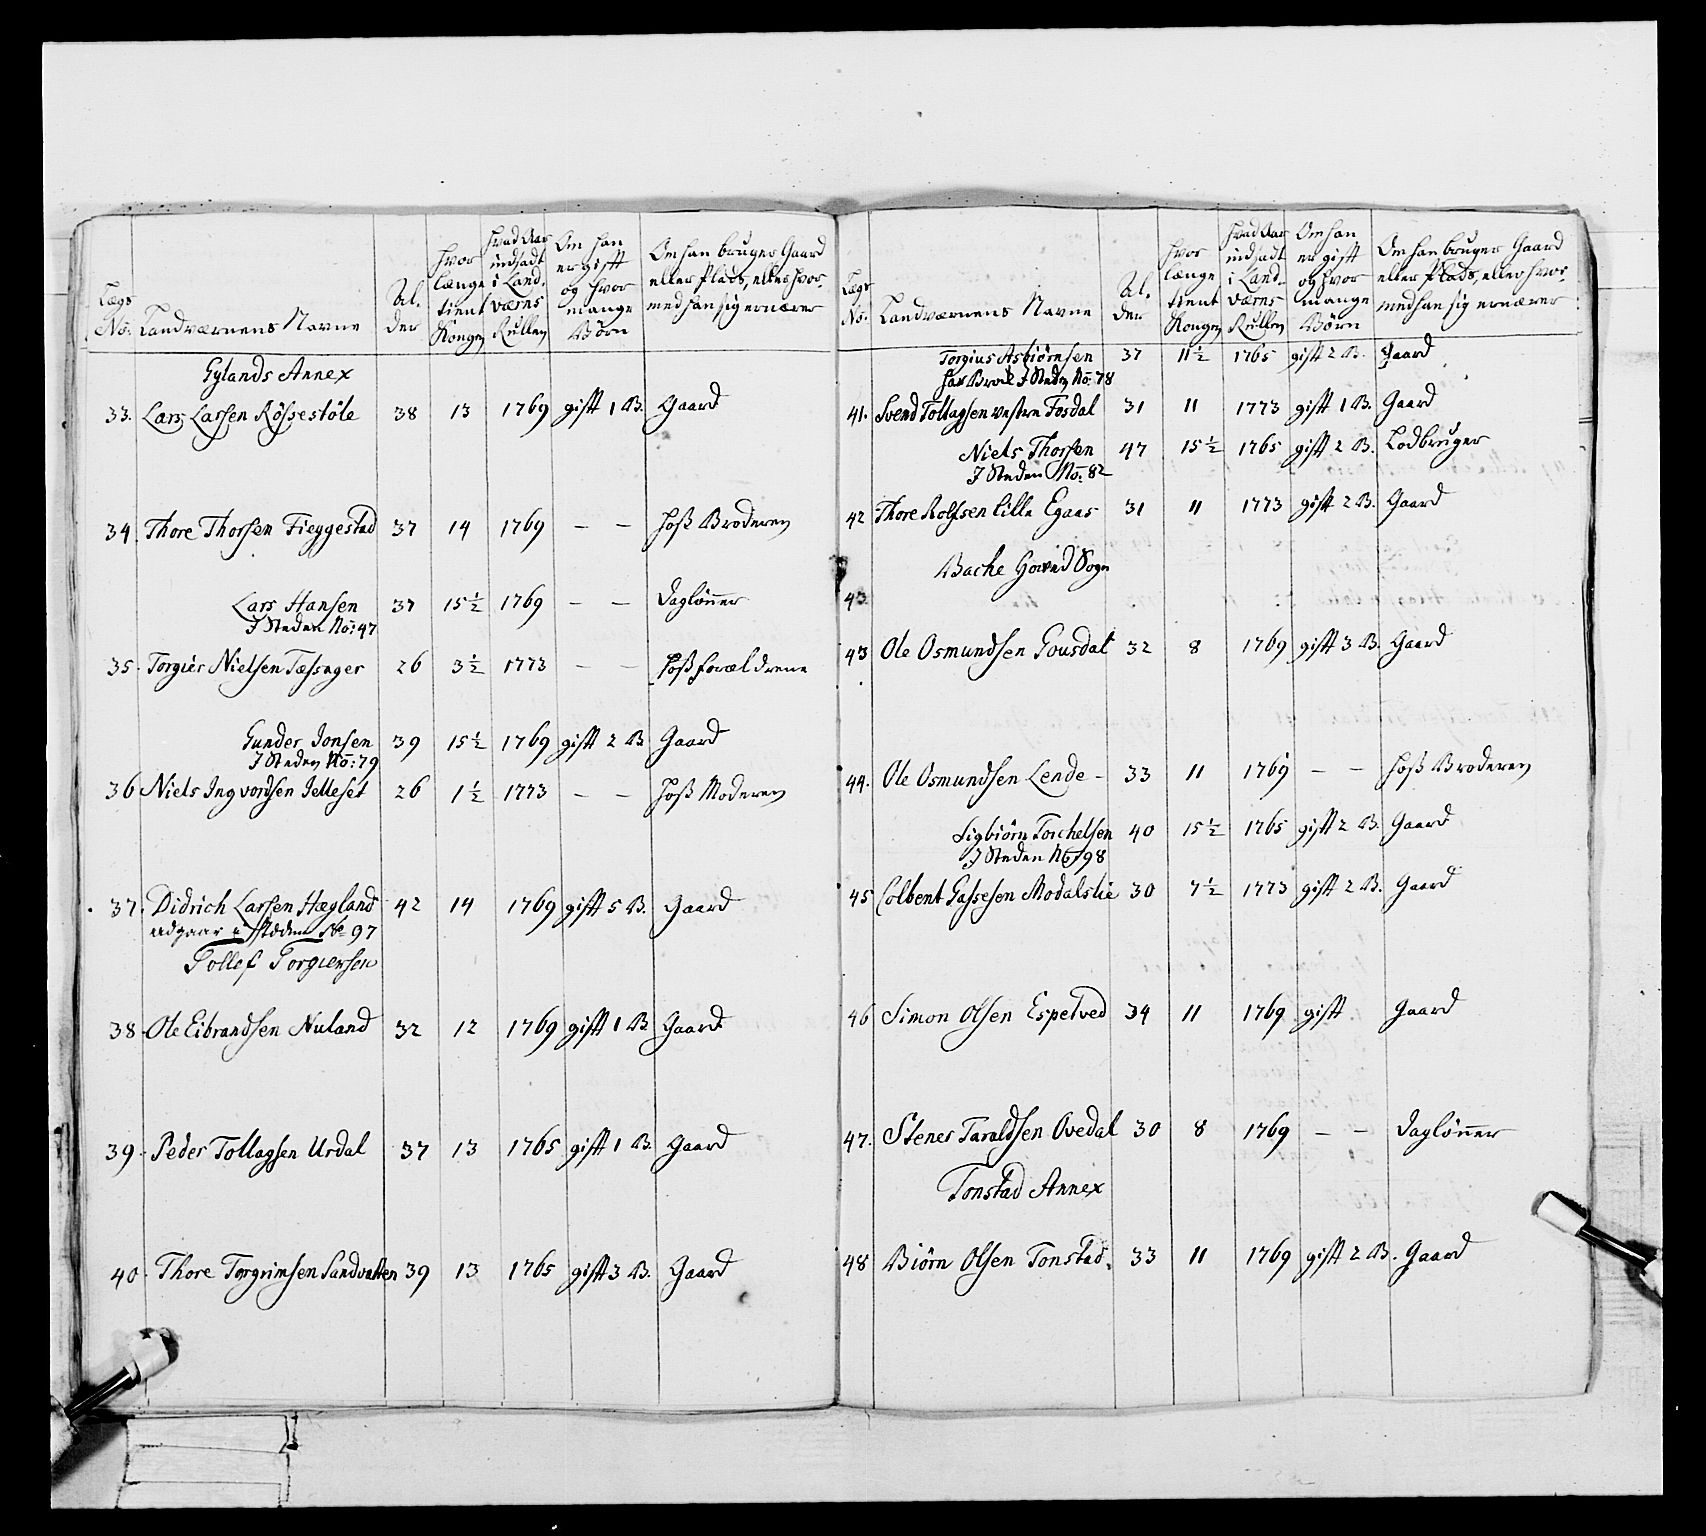 Lægs No. Landværnens Navne Al- der hvor længe tient Kongen hvad Aar indsadt i Land- værns Rullen Om han er gift og hvor mange Børn Om han bruger Gaard eller Plads, eller hvor- med han sig ernærer
Gylands Annex
33. Lars Larsen Røssestøle 38 13 1769 gift 1 B. Gaard
34. Thore Thorsen Fieggestad 37 14 1769 – – hoß Broderen
Lars Hansen 37 15½ 1769 – – Daglønner
I Steden No: 47
35. Torgier Nielsen 26 3½ 1773 – – hoß forældrene
Gunder Jonsen 39 15½ 1769 gift 2 B. Gaard
I Steden No: 79
36 Niels Ingvordsen Jelleset 26 1½ 1773 – – hoß Moderen
37. Didrich Larsen Hægland 42 14 1769 gift 5 B. Gaard
udgaar i stæden No 97
Tollef Torgiersen
38. Ole Eibrandsen Nuland 32 12 1769 gift 1 B. Gaard
39. Peder Tollagsen Urdal 37 13 1765 gift 1 B. Gaard
40. Thore Torgrimsen Sandvatten 39 13 1765 gift 3 B. Gaard
Lægs No. Landværnens Navne Al- der hvor længe tient Kongen hvad Aar indsadt i Land- værns Rullen Om han er gift og hvor mange Børn Om han bruger Gaard eller Plads, eller hvor- med han sig ernærer
Torgius Asbiørnsen 37 11½ 1765 gift 2 B. Gaard
har Brock I Steden No: 78
41. Svend Tollagsen vestre Fosdal 31 11 1773 gift 1 B. Gaard
Niels Thorsen 47 15½ 1765 gift 2 B. Lodbruger
I Steden No: 82
42 Thore Rolfsen lille Egaas 31 11 1773 gift 2 B. Gaard
Bache Hoved Sogn
43
43 Ole Osmundsen Gousdal 32 8 1769 gift 3 B. Gaard
44. Ole Osmundsen Lende – 33 11 1769 – – hoß Broderen
Sigbiørn Torchelsen 40 15½ 1765 gift 2 B. Gaard
I Steden No 98
45 Colbent Gassesen Modalslie 30 7½ 1773 gift 2 B. Gaard
46 Simon Olsen Espetved 34 11 1769 gift Gaard
47. Stener Taraldsen Ovedal 30 8 1769 – – Daglønner
Tonstad Annex
48 Biörn Olsen Tonstad. 33 11 1769 gift 2 B. Gaard